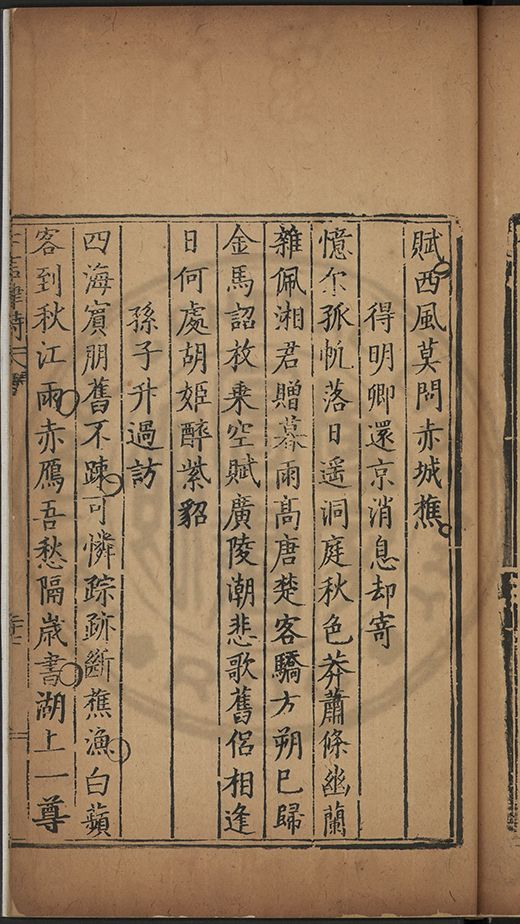 賦西風莫問赤城樵
得明卿還京消息却寄
憶尔孤帆落日遥洞庭秋色莽蕭條幽蘭
雜佩湘君贈暮雨高唐楚客驕方朔已歸
金馬詔枚乗空賦廣陵潮悲歌舊侣相逢
日何處胡姬醉紫貂
孫子升過訪
四海賓朋舊不踈可憐踪跡斷樵漁白蘋
客到秋江雨赤鴈吾愁隔歳書湖上一尊